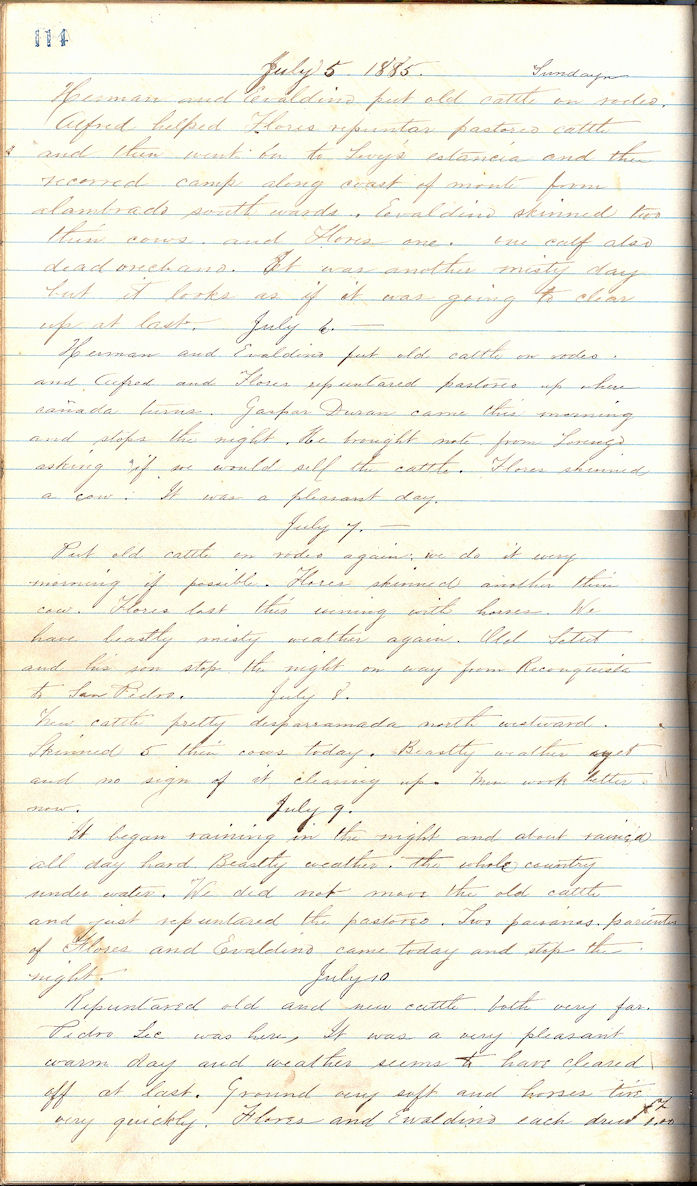 114
July 5 1885. Sunday
Herman and Evaldino put old cattle on rodeo.
Alfred helped Flores repuntar pastoreo cattle
and then went on to Levy's estancia and then
recorred camp along coast of monte from
alambrado southwards. Evaldino skinned two
thin cows. and Flores one. one calf also
dead orechano. It was another misty day
but it looks as if it was going to clear
up at last. July 6. —
Herman and Evaldino put old cattle on rodeo.
and Alfred and Flores repuntared pastoreo up where
cañada turns. Gaspar Duran came this morning
and stops the night. He brought note from Lorenzo
asking if we would sell the cattle. Flores skinned
a cow. It was a pleasant day.
July 7. —
Put old cattle on rodeo again; we do it every
morning if possible. Flores skinned another thin
cow. Flores lost this evening with horses. We
have beastly misty weather again. Old
and his son stop the night on way from Reconquista
to San Pedro. July 8.
New cattle pretty desparramada north westward.
Skinned 5 thin cows today. Beastly weather yet
and no sign of it clearing up. Men work better
now. July 9.
It began raining in the night and about rained
all day hard. Beastly weather. the whole country
under water. We did not move the old cattle
and just repuntared the pastoreo. Two paisanos. parientes
of Flores and Evaldino came today and stop the
night. July 10
Repuntared old and new cattle both very far.
Pedro was here, It was a very pleasant
warm day and weather seems to have cleared
off at last. Ground very soft and horses tire
very quickly. Flores and Evaldino each drew 1.00